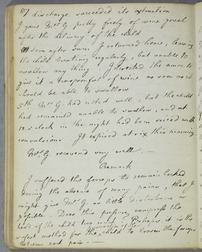 discharge succeeded its extraction
I gave Mrs G. pretty freely of wine
after the delivery of the child
soon after I returned home, leaving
the child breathing regularly, but unable to
swallow any thing. I directed the nurse to
give it a teaspoonful of wine as soon as it
should be able to swallow
5th Mrs G. had rested well, but the child
had remained unable to swallow, and at
12 o'clock in the night had been seized with
convulsions. It expired at six this morning
Mrs G. recovered very well
Remark
I suffered the forceps to remain locked
during the absence of many pains, that I
might give Mrs G. as little disturbance as
possible. Does this pressure
head of the child
method for the child to loosen the forceps
between each pain